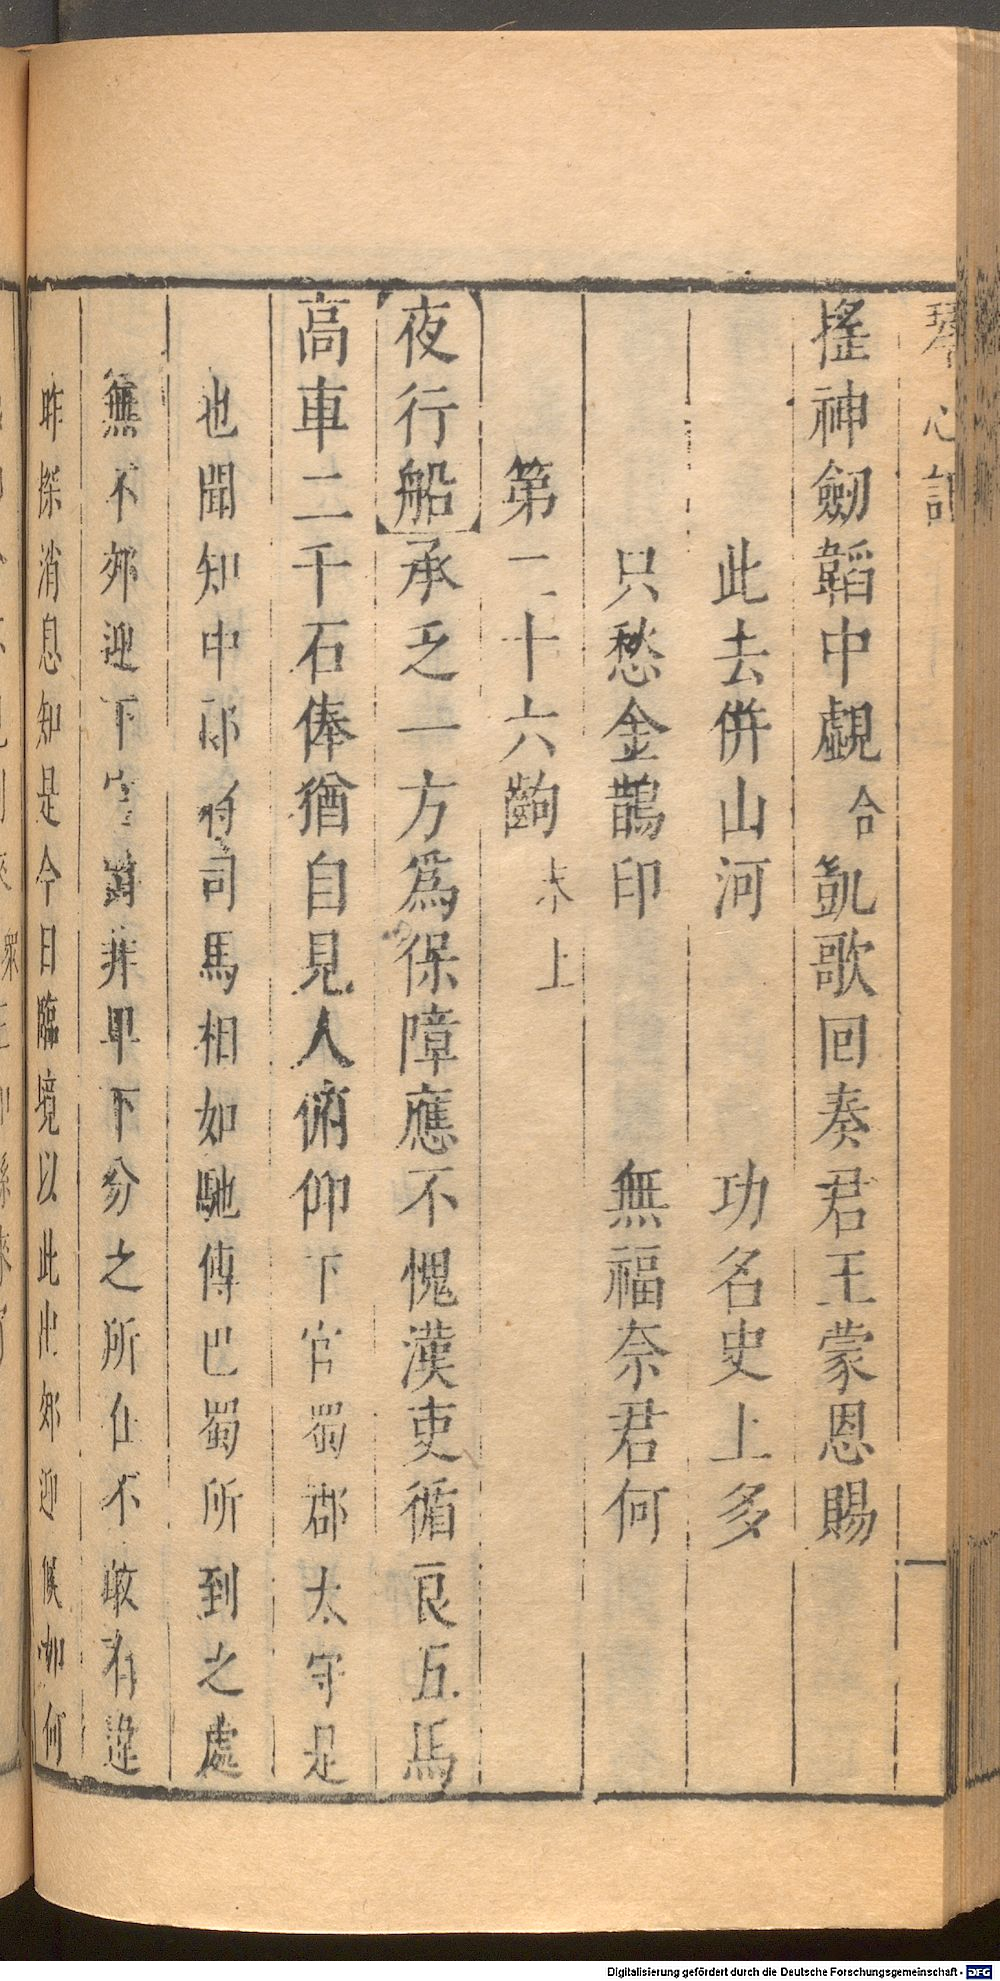 琴心記
搖神劒韜中覷合凱歌回奏君王蒙恩賜
此去併山河　功名史上多
只愁金鵲印　無福奈君何
第二十六齣末上
夜行船承乏一方爲保障應不愧漢吏循良五馬
高車二千石俸猶自見人俯仰下官蜀郡太守是
也聞知中郎將司馬相如馳傳巴蜀所到之處
無不郊迎下官
卑下分之所任不敢有違
昨探消息知是今日臨境以此出郊迎候如何
Digitalisierung gefördert durch die Deutsche Forschungsgemeinschaft - DFG